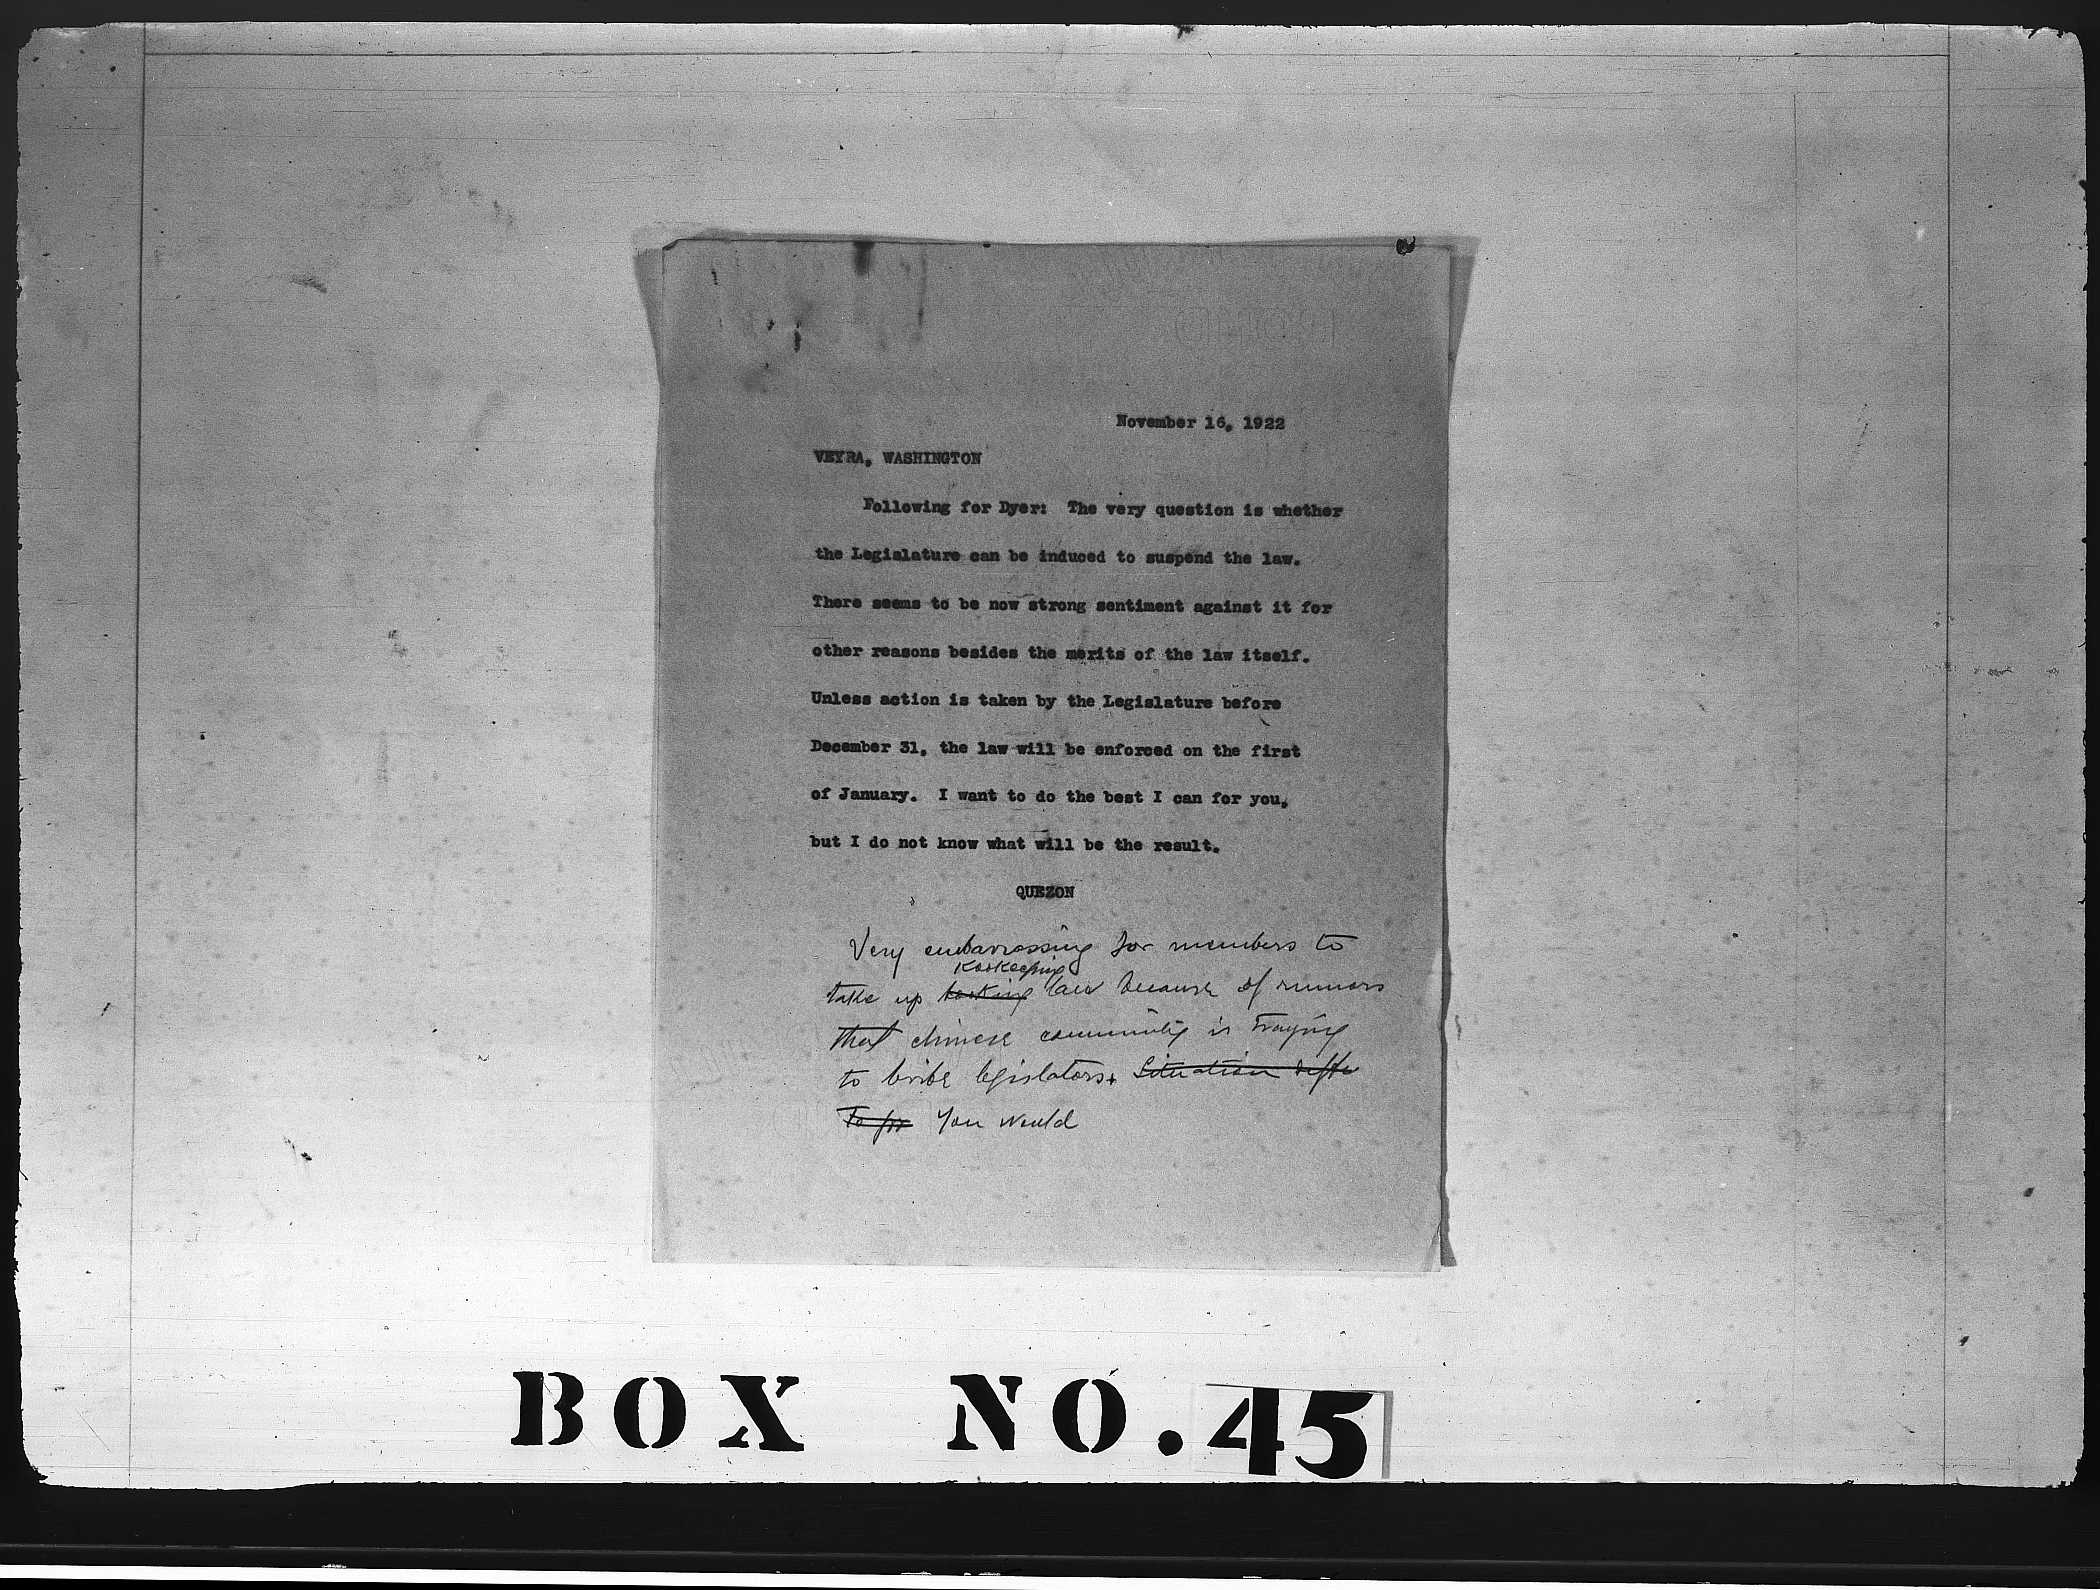 November 16, 1922
VEYRA, WASHINGTON
Following for Dyer: The very question is whether
the Legislature can be induced to suspend the law.
There seems to be now strong sentiment against it for
other reasons besides the merits of the law itself.
Unless action is taken by the Legislature before
December 31, the law will be enforced on the first
of January. I want to do the best I can for you,
but I do not know what will be the result.
QUEZON
Very embarrassing for members to
take up law because of rumors
that chinese community is traying
to bribe legislators. Situation
You would
BOX NO. 45